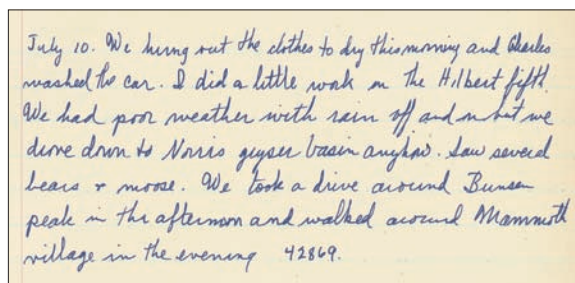 July 10. We hung out the clothes to dry this morning and Charles
washed the car. I did a little work on the Hilbert fifth.
We had poor weather with rain off and on but we
drove down to Norris geyser basin anyhow. Saw several
bears & moose. We took a drive around Bunsen
peak in the afternoon and walked around Mammoth
village in the evening 42869.